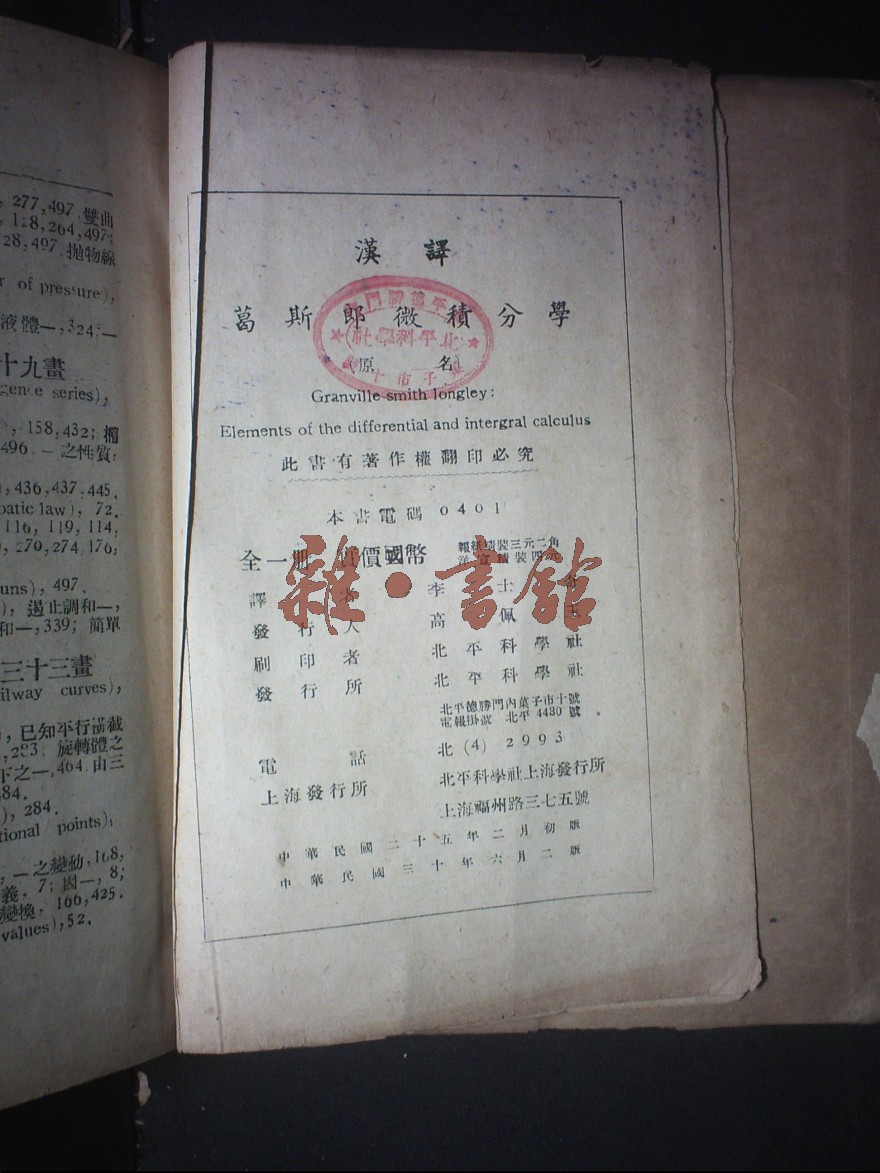 277,497 雙曲
128,264,497;
28,497 拋物線
r of pressure),
液體—,324;—
十九畫
gence series),
,158,432; 擺
496 — 之性質,
,436,437,445.
batic law), 72.
116, 119, 114,
270,274,176,
uns), 497.
遏止調和—,
和—,339; 簡單
三十三畫
ilway curves),
已知平行橫截
,283, 旋轉體之
下之—,464.由三
84.
), 284.
tional points);
—之變動,168,
義, 7; 因—, 8;
變換, 166,425.
values),52.
漢譯
葛斯郎微積分學
北平科學社
(原名)
Granville-smith longley:
Elements of the differential and intergral calculus
此書有著作權翻印必究
本書電碼 0401
全一册 實價國幣 報紙精裝三元二角
譯者 李士
發行人 高佩
刷印者 北平科學社
發行所 北平科學社
北平德勝門內菓子市十號
電報掛號 北平 4430 號
電話 北 (4) 2993
上海發行所 北平科學社上海發行所
上海福州路三七五號
中華民國二十五年二月初版
中華民國三十年六月二版
雜·書館